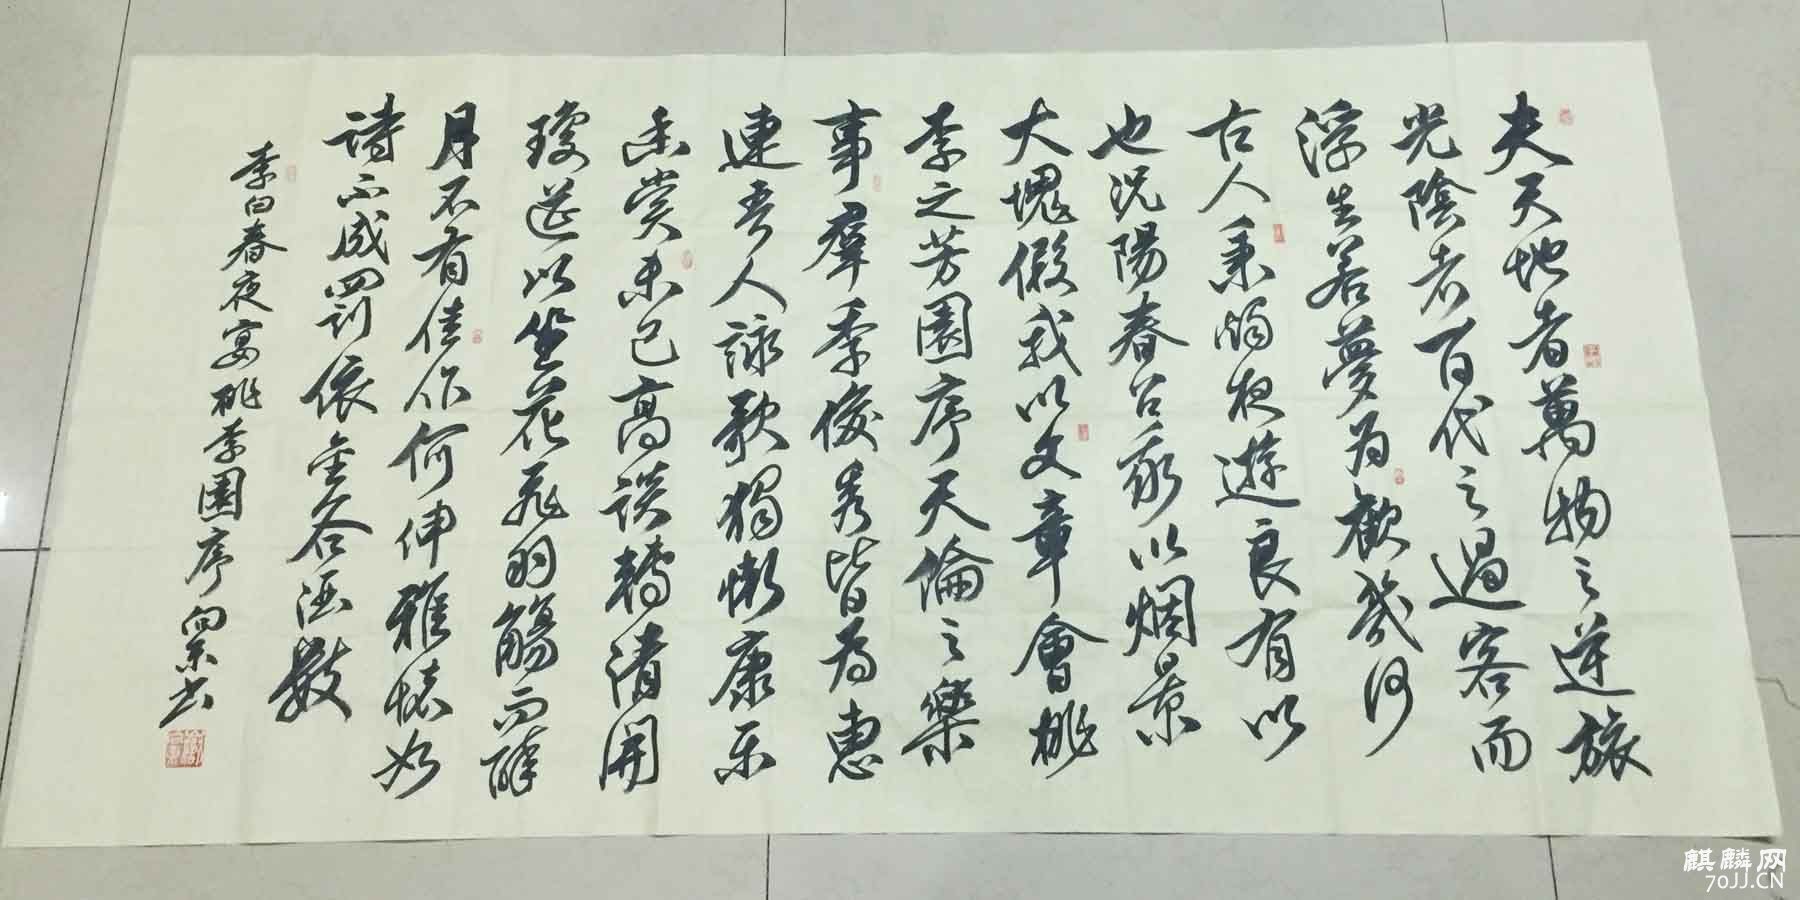 夫天地者萬物之逆旅
光陰者百代之過客而
浮生若夢為歡幾何
古人秉燭夜遊良有以
也況陽春召我以烟景
大塊假我以文章會桃
李之芳園序天倫之樂
事羣季俊秀皆為惠
連吾人詠歌獨慚康樂
幽賞未已高談轉清開
瓊筵以坐花飛羽觴而醉
月不有佳作何伸雅懷如
詩不成罰依金谷酒數
李白春夜宴桃李園序 向榮書
麒麟网
70JJ.CN